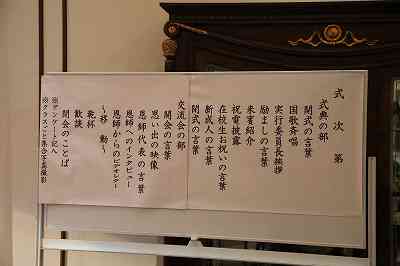 式次第
式典の部
開式の言葉
国歌斉唱
実行委員長挨拶
励ましの言葉
来賓紹介
祝電披露
在校生お祝いの言葉
新成人の言葉
閉式の言葉
交流会の部
開会の言葉
思い出の映像
恩師代表の言葉
恩師へのインタビュー
恩師からのビデオレター
～移動～
乾杯
歓談
閉会のことば
※アンケート記入
※クラスごと集合写真撮影